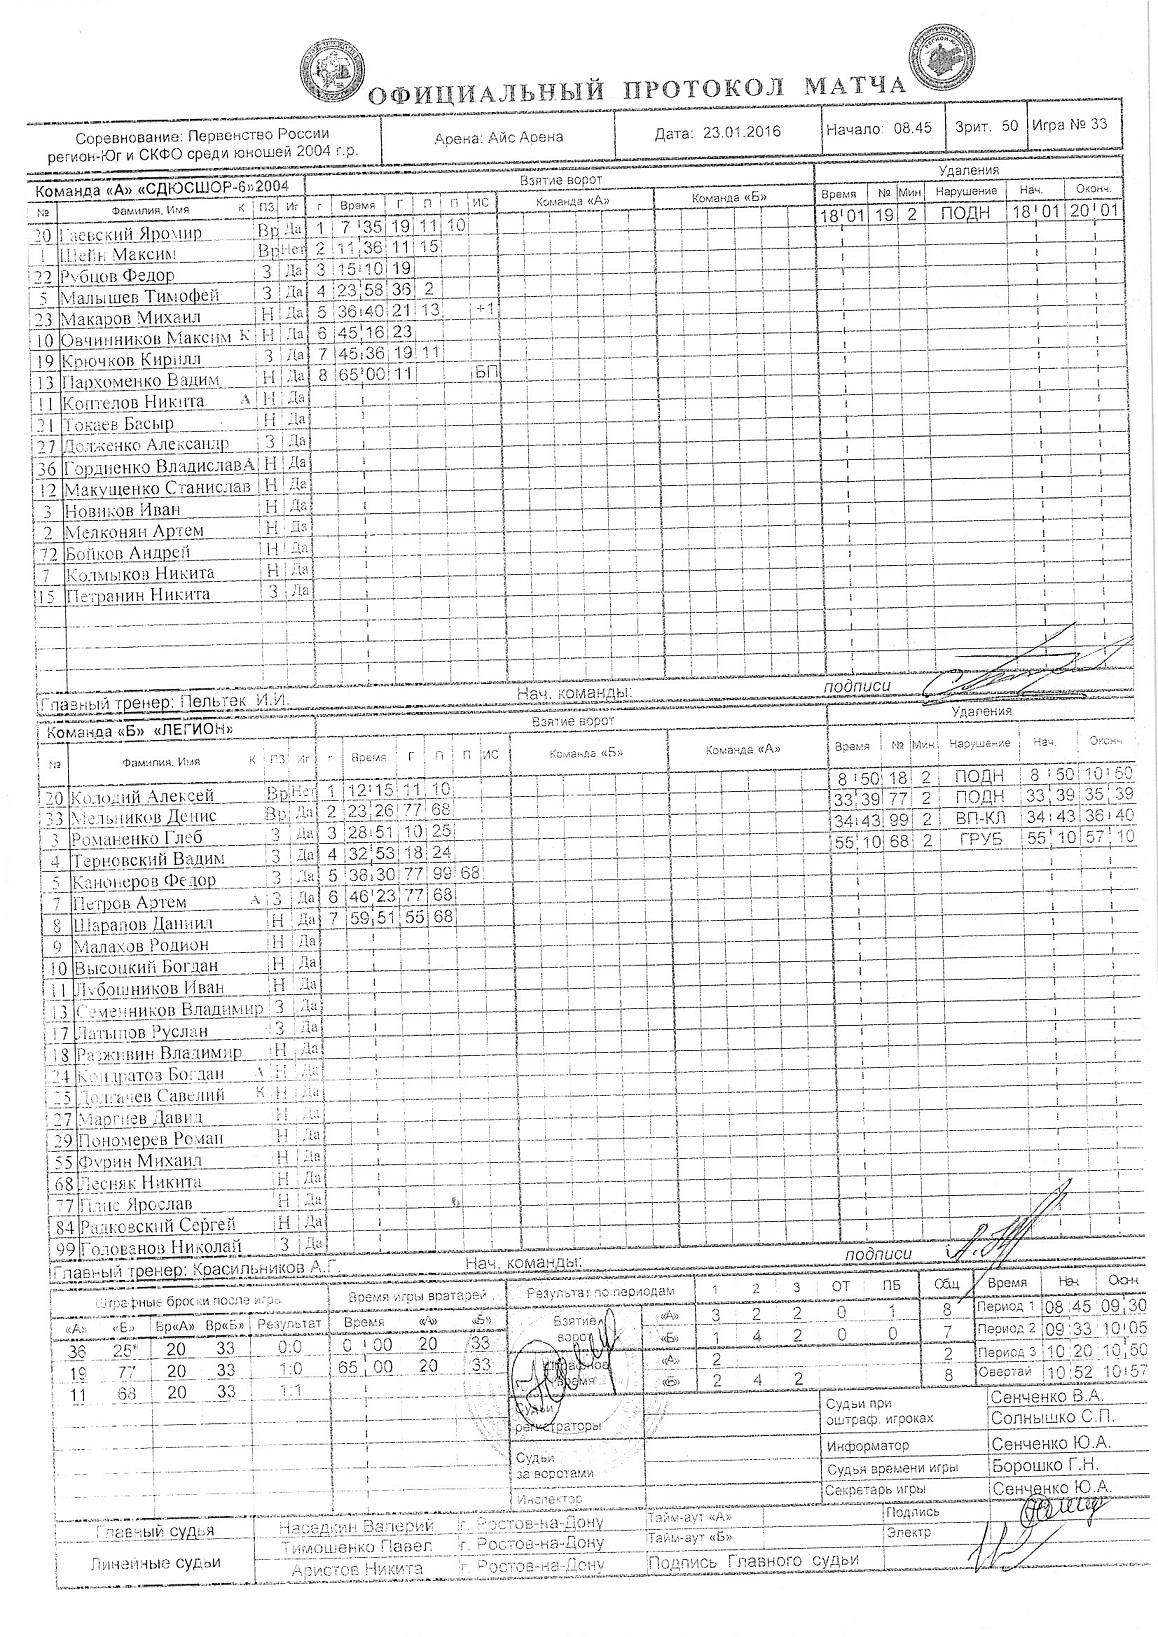 ОФИЦИАЛЬНЫЙ ПРОТОКОЛ МАТЧА
Соревнование: Первенство России регион-Юг и СКФО среди юношей 2004 г.р. Арена: Айс Арена Дата: 23.01.2016 Начало: 08.45 Зрит. 50 Игра № 33
Команда «А» «СДЮСШОР-6»2004 Взятие ворот Удаления
№ Фамилия, Имя К ПЗ Иг г Время Г П П ИС Команда «А» Команда «Б» Время № Мин Нарушение Нач. Оконч.
20 Гаевский Яромир Вр Да 1 7 35 19 11 10 18 01 19 2 ПОДН 18 01 20 01
1 Шейн Максим Вр Нет 2 11 36 11 15
22 Рубцов Федор З Да 3 15 10 19
5 Малышев Тимофей З Да 4 23 58 36 2
23 Макаров Михаил Н Да 5 36 40 21 13 +1
10 Овчинников Максим К Н Да 6 45 16 23
19 Крючков Кирилл З Да 7 45 36 19 11
13 Пархоменко Вадим Н Да 8 65 00 11 БП
11 Коптелов Никита А Н Да
21 Токаев Басыр Н Да
27 Долженко Александр З Да
36 Гордиенко Владислав А Н Да
12 Макущенко Станислав Н Да
3 Новиков Иван Н Да
2 Мелконян Артем Н Да
72 Бойков Андрей Н Да
7 Колмыков Никита Н Да
15 Петранин Никита З Да
Главный тренер: Пельтек И.И. Нач. команды: подписи
Команда «Б» «ЛЕГИОН» Взятие ворот Удаления
№ Фамилия, Имя К ПЗ Иг г Время Г П П ИС Команда «Б» Команда «А» Время № Мин Нарушение Нач. Оконч
20 Колодий Алексей Вр Нет 1 12 15 11 10 8 50 18 2 ПОДН 8 50 10 50
33 Мельников Денис Вр Да 2 23 26 77 68 33 39 77 2 ПОДН 33 39 35 39
3 Романенко Глеб З Да 3 28 51 10 25 34 43 99 2 ВП-КЛ 34 43 36 40
4 Терновский Вадим З Да 4 32 53 18 24 55 10 68 2 ГРУБ 55 10 57 10
5 Канонеров Федор З Да 5 38 30 77 99 68
7 Петров Артем А З Да 6 46 23 77 68
8 Шарапов Даниил Н Да 7 59 51 55 68
9 Малахов Родион Н Да
10 Высоцкий Богдан Н Да
11 Лубошников Иван Н Да
13 Семенников Владимир З Да
17 Латыпов Руслан З Да
18 Разживин Владимир Н Да
24 Кондратов Богдан А Н Да
25 Долгачев Савелий К Н Да
27 Маргиев Давид Н Да
29 Пономерев Роман Н Да
55 Фурин Михаил Н Да
68 Лесняк Никита Н Да
77 Плис Ярослав Н Да
84 Радковский Сергей Н Да
99 Голованов Николай З Да
Главный тренер: Красильников А.Г. Нач. команды: подписи
Штрафные броски после игры Время игры вратарей Результат по периодам 1 2 3 ОТ ПБ Общ Время Нач. Оконч.
«А» «Б» Вр«А» Вр«Б» Результат Время «А» «Б» Взятие ворот «А» 3 2 2 0 1 8 Период 1 08 45 09 30
36 25* 20 33 0:0 0 00 20 33 «Б» 1 4 2 0 0 7 Период 2 09 33 10 05
19 77 20 33 1:0 65 00 20 33 Штрафное время «А» 2 2 Период 3 10 20 10 50
11 68 20 33 1:1 «Б» 2 4 2 8 Овертай 10 52 10 57
Судьи регистраторы Судьи при оштраф. игроках Сенченко В.А.
Солнышко С.П.
Судьи за воротами Информатор Сенченко Ю.А.
Судья времени игры Борошко Г.Н.
Инспектор Секретарь игры Сенченко Ю.А.
Главный судья Наседкин Валерий г. Ростов-на-Дону Тайм-аут «А» Подпись
Линейные судьи Тимошенко Павел г. Ростов-на-Дону Тайм-аут «Б» Электр
Аристов Никита г. Ростов-на-Дону Подпись Главного судьи